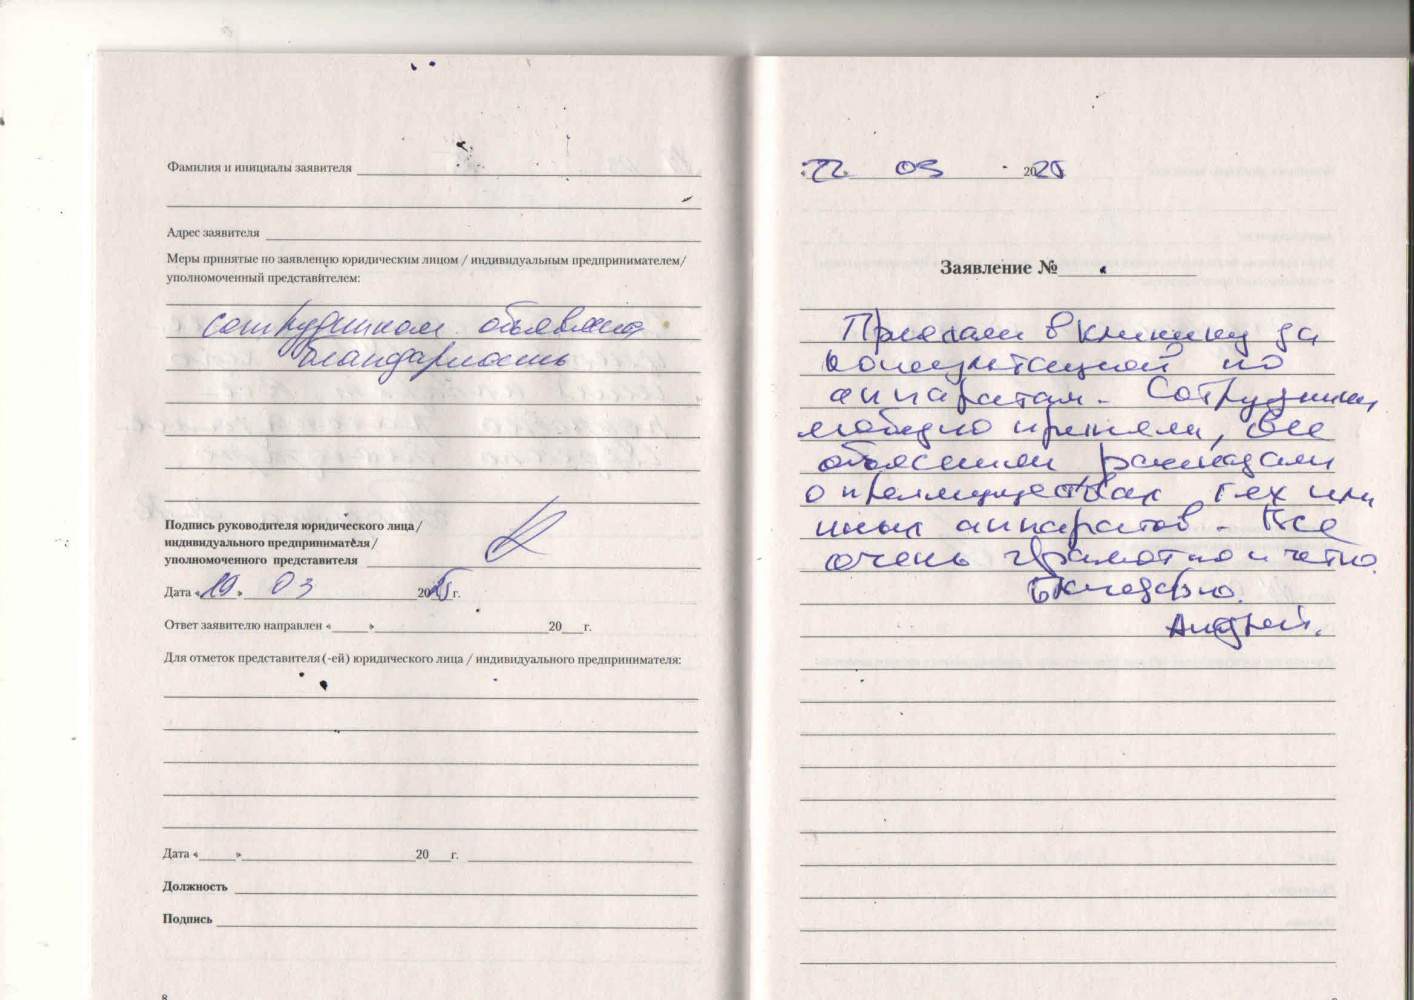 Фамилия и инициалы заявителя
Адрес заявителя
Меры принятые по заявлению юридическим лицом / индивидуальным предпринимателем/
уполномоченный представителем:
сотрудникам объявлена
благодарность
Подпись руководителя юридического лица /
индивидуального предпринимателя /
уполномоченного представителя
Дата «19» 03 2025 г.
Ответ заявителю направлен «    »            20    г.
Для отметок представителя (-ей) юридического лица / индивидуального предпринимателя:
Дата «    »            20    г.
Должность
Подпись
8
«22» 03 2025
Заявление №
Приехали в клинику за
консультацией по
аппаратам. Сотрудники
любезно приняли, все
объяснили рассказали
о преимуществах тех или
иных аппаратов. Все
очень грамотно и четко.
Благодарю.
Андрей.